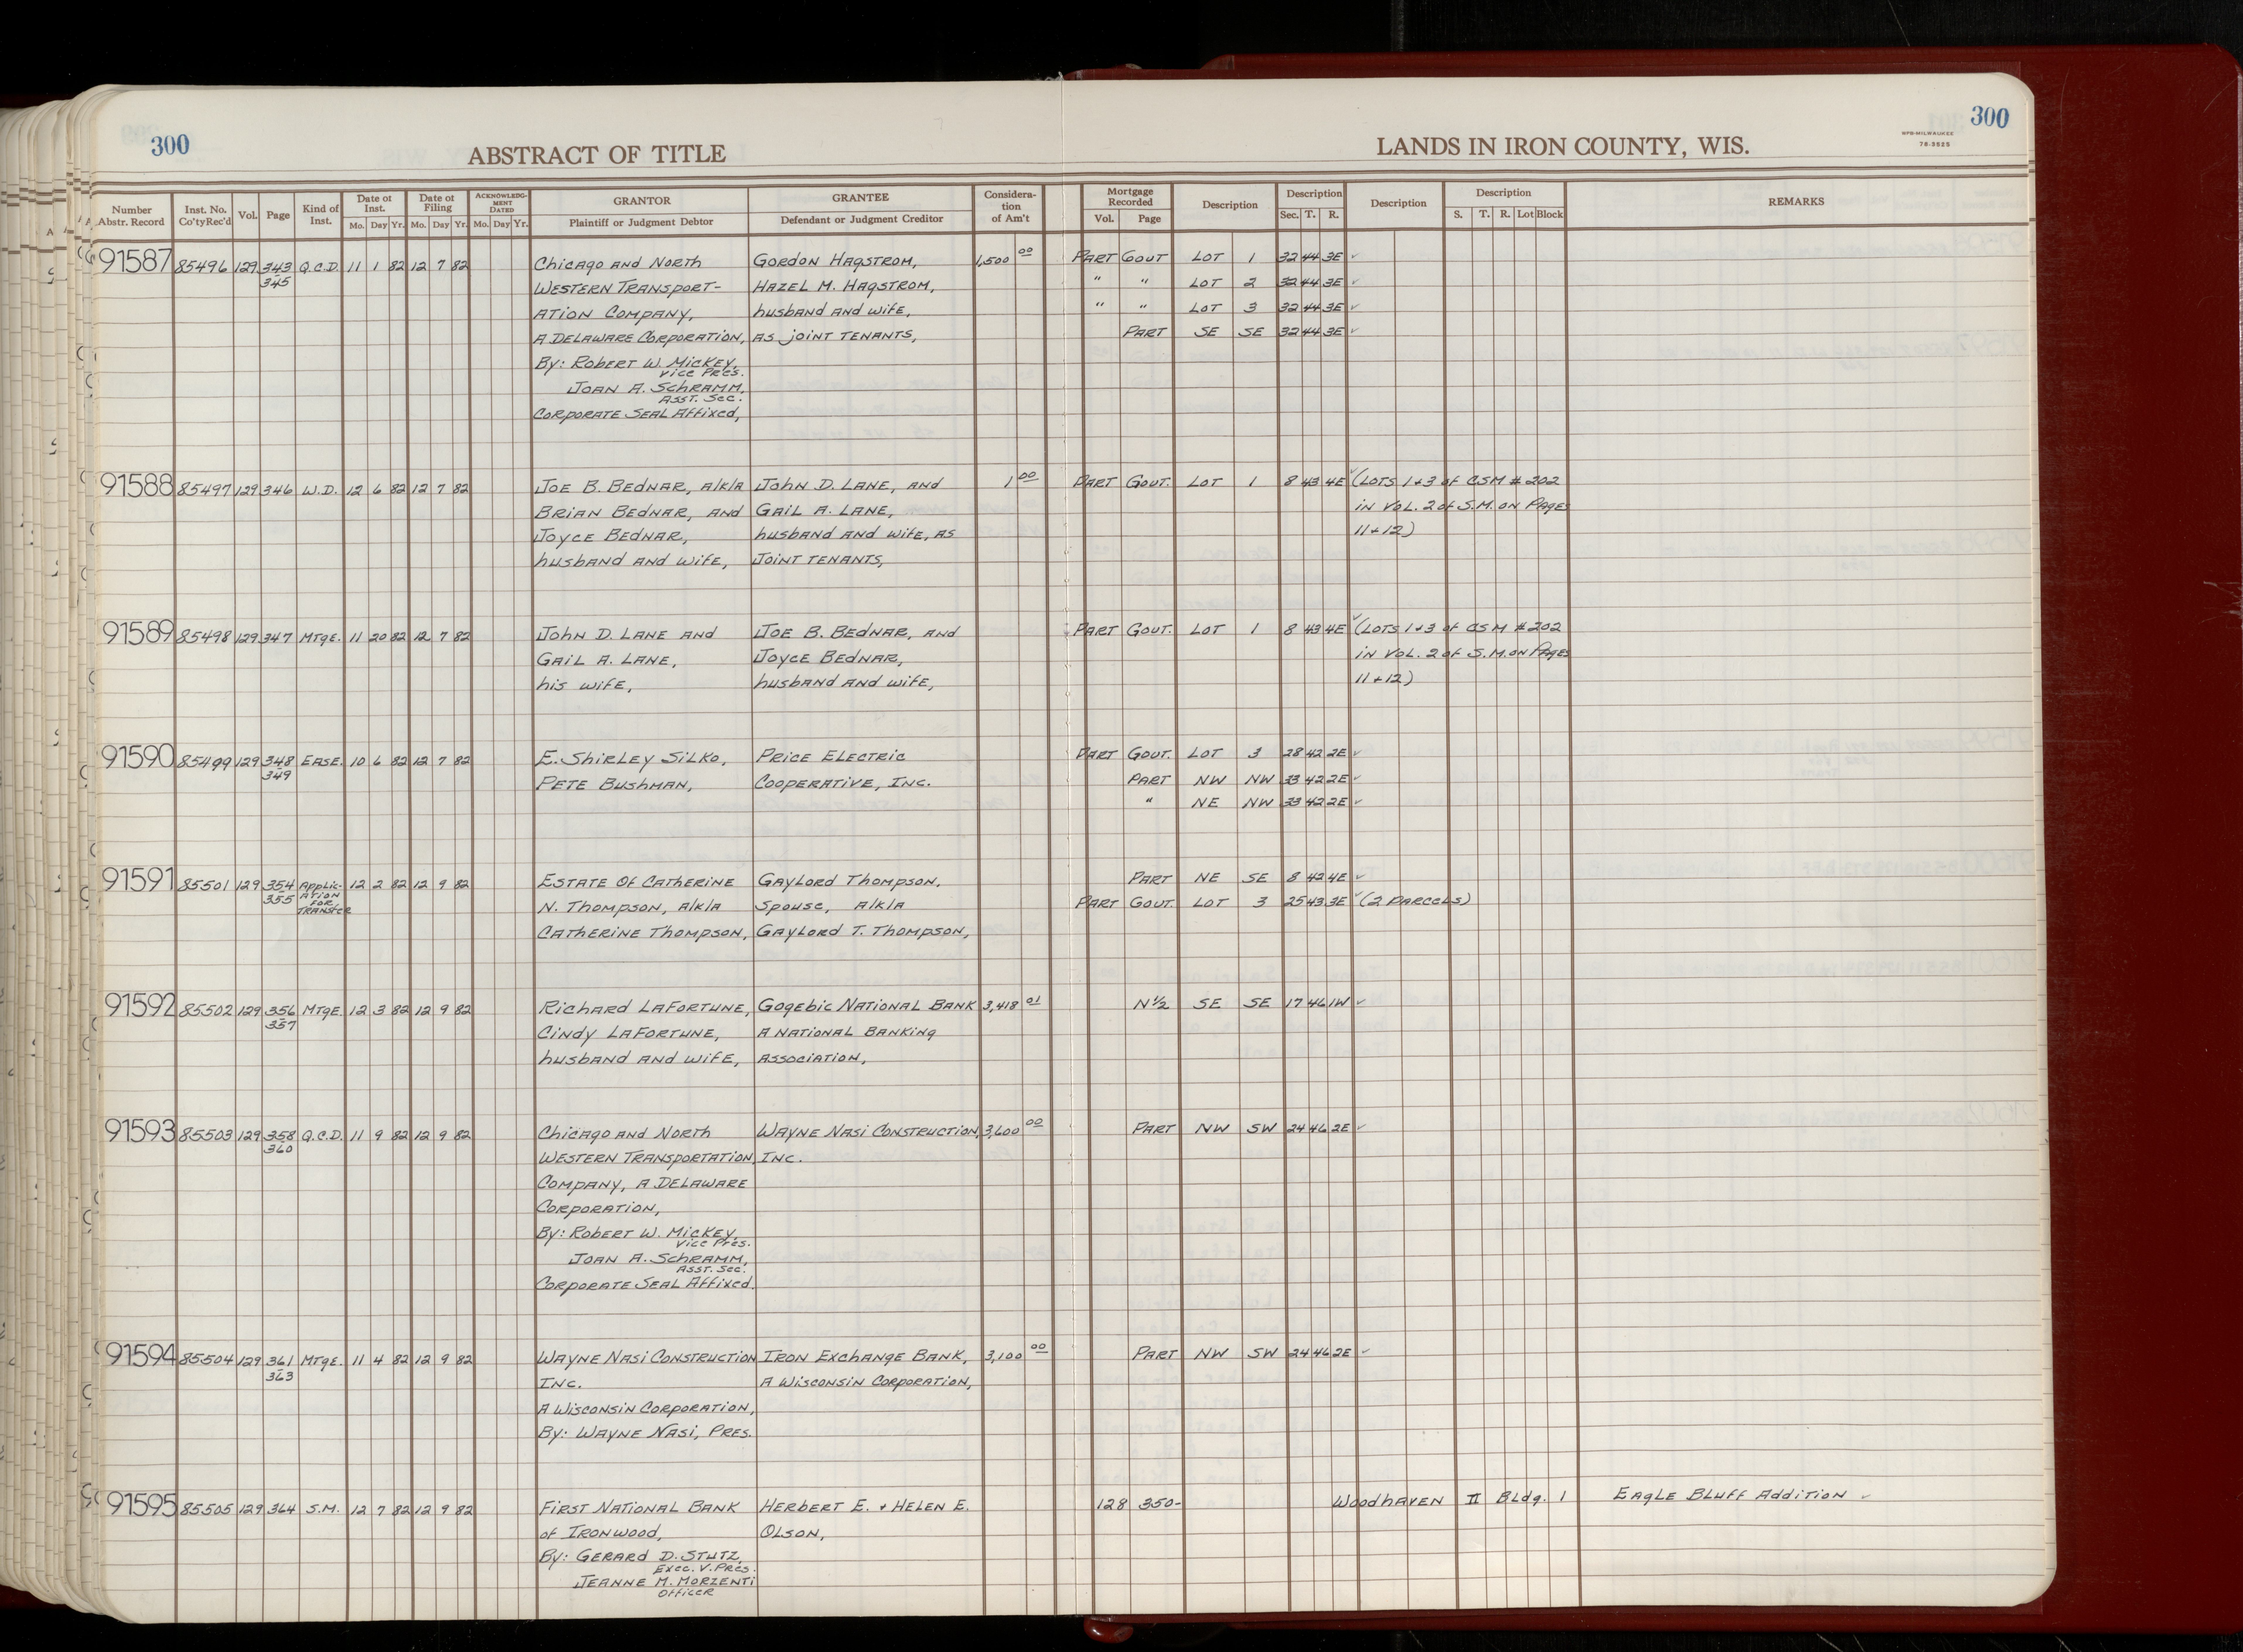 300
ABSTRACT OF TITLE
LANDS IN IRON COUNTY, WIS.
NPB-MILWAUKEE
78-3525
300
Number Abstr. Record | Inst. No. Co'ty Rec'd | Vol. | Page | Kind of Inst. | Date of Inst. Mo. Day Yr. | Date of Filing Mo. Day Yr. | ACKNOWLEDGMENT DATED Mo. Day Yr. | GRANTOR Plaintiff or Judgment Debtor | GRANTEE Defendant or Judgment Creditor | Consideration of Am't | Mortgage Recorded Vol. Page | Description | Description Sec. T. R. | Description | Description S. T. R. Lot Block | REMARKS
91587 85496 129 343 Q.C.D. 11 1 82 12 7 82 Chicago and North Gordon Hagstrom, 1,500 00 Part Gout Lot 1 32 44 3E ✓
345 Western Transport- Hazel M. Hagstrom, " " Lot 2 32 44 3E ✓
ation Company, husband and wife, " " Lot 3 32 44 3E ✓
A Delaware Corporation, as joint tenants, Part SE SE 32 44 3E ✓
By: Robert W. Mickey,
Vice Pres.
Joan A. Schramm,
Asst. Sec.
Corporate Seal Affixed,
91588 85497 129 346 W.D. 12 6 82 12 7 82 Joe B. Bednar, a/k/a John D. Lane, and 1 00 Part Gout. Lot 1 8 43 4E ✓ (Lots 1+3 of CSM # 202
Brian Bednar, and Gail A. Lane, in Vol. 2 of S.M. on Pages
Joyce Bednar, husband and wife, as 11+12)
husband and wife, Joint tenants,
91589 85498 129 347 Mtge. 11 20 82 12 7 82 John D. Lane and Joe B. Bednar, and Part Gout. Lot 1 8 43 4E ✓ (Lots 1+3 of CSM # 202
Gail A. Lane, Joyce Bednar, in Vol. 2 of S.M. on Pages
his wife, husband and wife, 11+12)
91590 85499 129 348 Ease. 10 6 82 12 7 82 E. Shirley Silko, Price Electric Part Gout. Lot 3 28 42 2E ✓
349 Pete Bushman, Cooperative, Inc. Part NW NW 33 42 2E ✓
" NE NW 33 42 2E ✓
91591 85501 129 354 Applic- 12 2 82 12 9 82 Estate of Catherine Gaylord Thompson, Part NE SE 8 42 4E ✓
355 ation for Transfer N. Thompson, a/k/a Spouse, a/k/a Part Gout. Lot 3 25 43 3E ✓ (2 Parcels)
Catherine Thompson, Gaylord T. Thompson,
91592 85502 129 356 Mtge. 12 3 82 12 9 82 Richard LaFortune, Gogebic National Bank 3,418 01 N½ SE SE 17 46 1W ✓
357 Cindy LaFortune, A National Banking
husband and wife, Association,
91593 85503 129 358 Q.C.D. 11 9 82 12 9 82 Chicago and North Wayne Nasi Construction, 3,600 00 Part NW SW 24 46 2E ✓
360 Western Transportation Inc.
Company, a Delaware
Corporation,
By: Robert W. Mickey,
Vice Pres.
Joan A. Schramm,
Asst. Sec.
Corporate Seal Affixed.
91594 85504 129 361 Mtge. 11 4 82 12 9 82 Wayne Nasi Construction Iron Exchange Bank, 3,100 00 Part NW SW 24 46 2E ✓
363 Inc. A Wisconsin Corporation,
A Wisconsin Corporation,
By: Wayne Nasi, Pres.
91595 85505 129 364 S.M. 12 7 82 12 9 82 First National Bank Herbert E. + Helen E. 128 350- Woodhaven II Bldg. 1 Eagle Bluff Addition ✓
of Ironwood, Olson,
By: Gerard D. Stutz,
Exec. V. Pres.
Jeanne M. Morzenti
Officer